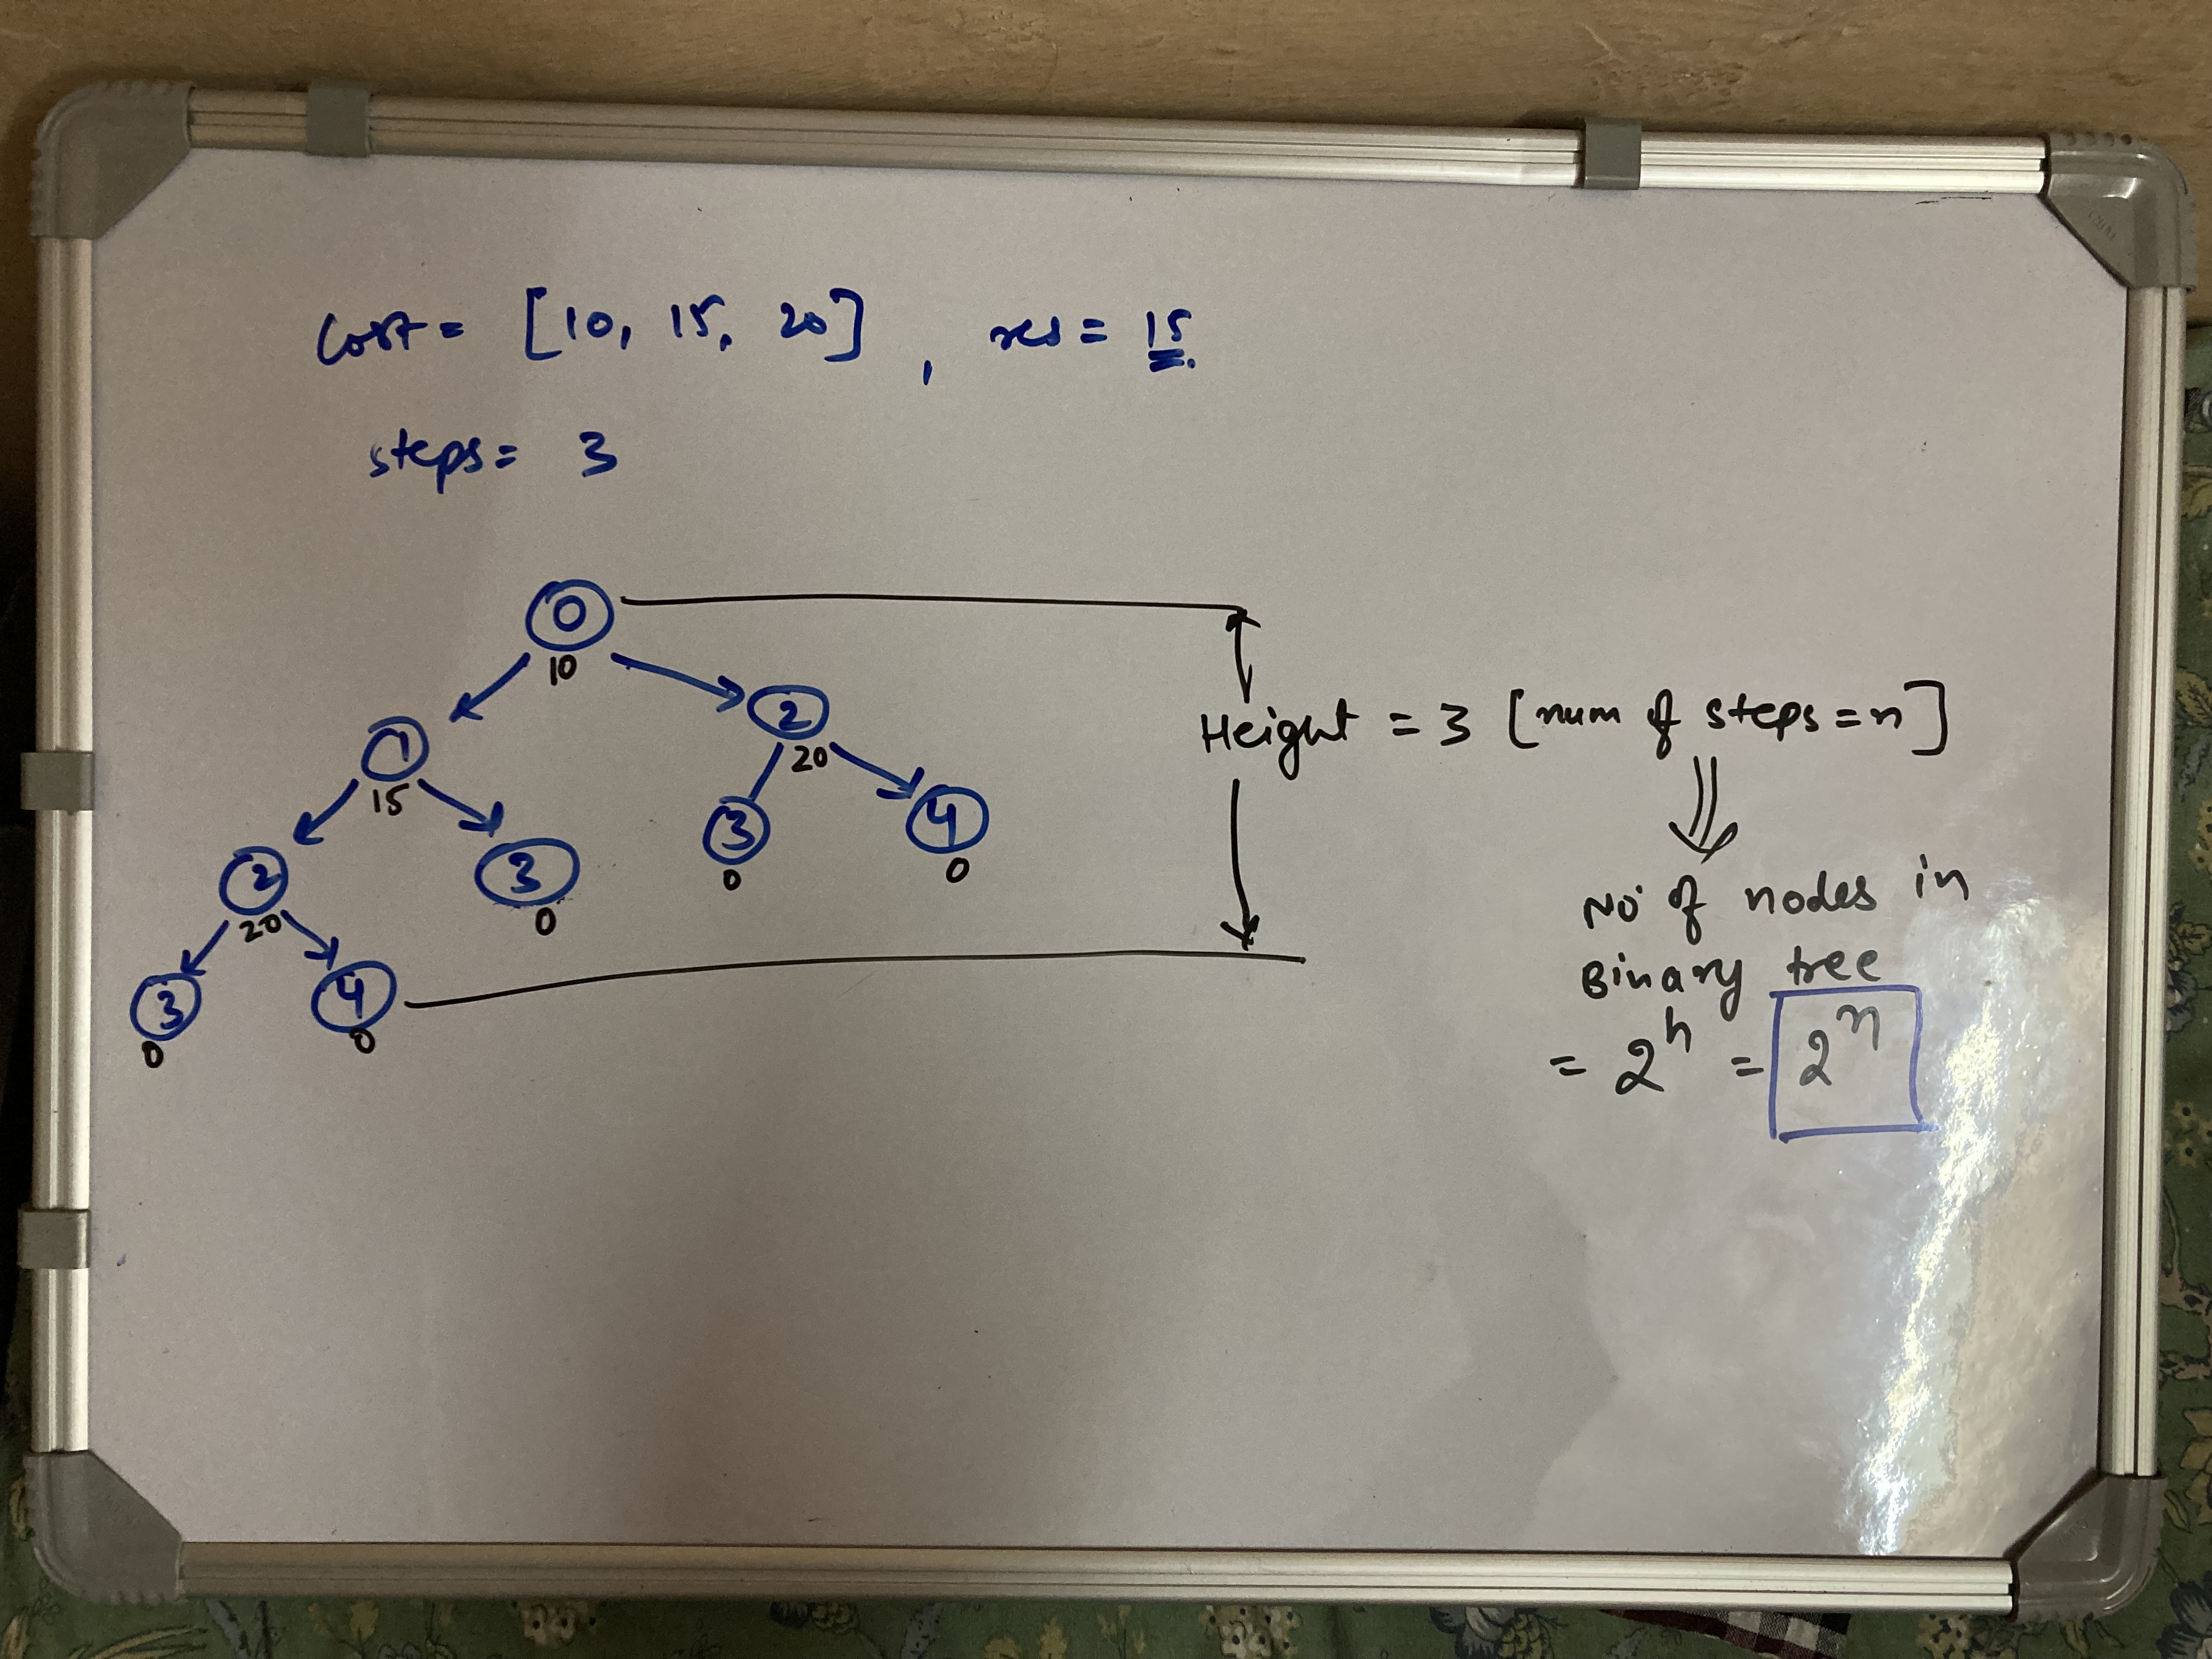 cost = [10, 15, 20] , res = 15
steps = 3
0
10
1
15
2
20
2
20
3
0
3
0
4
0
3
0
4
0
Height = 3 [num of steps = n]
No of nodes in
Binary tree
= 2^h = 2^n